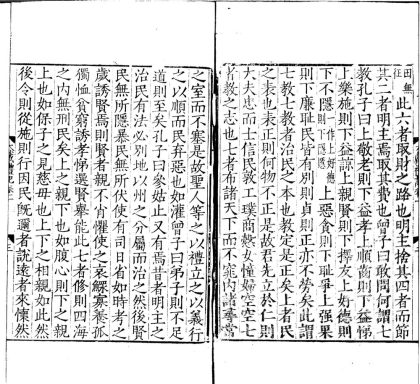 田無征此六者取財之路也明主捨其四者而節
其二者明主焉取其費也曾子曰敢問何謂七
教孔子曰上敬老則下益孝上順齒則下益悌
上樂施則下益諒上親賢則下擇友上好德則
下不隱上惡貪則下恥爭上强果
則下廉恥民皆有別則貞則正亦不勞矣此謂
七教七教者治民之本也教定是正矣上者民
之表也表正則何物不正是故君先立於仁則
大夫忠而士信民敦工璞商慤女憧婦空空七
者教之志也七者布諸天下而不窕內諸尋常
之室而不塞是故聖人等之以禮立之以義行
之以順而民棄惡也如灌曾子曰弟子則不足
道則至矣孔子曰參姑止又有焉昔者明主之
治民有法必別地以州之分屬而治之然後賢
民無所隱暴民無所伏使有司日省如時考之
歲誘賢焉則賢者親不肖懼使之哀鰥寡養孤
獨恤貧窮誘孝悌選賢舉能此七者修則四海
之內無刑民矣上之親下也如腹心則下之親
上也如保子之見慈母也上下之相親如此然
後令則從施則行因民既邇者說遠者來懷然